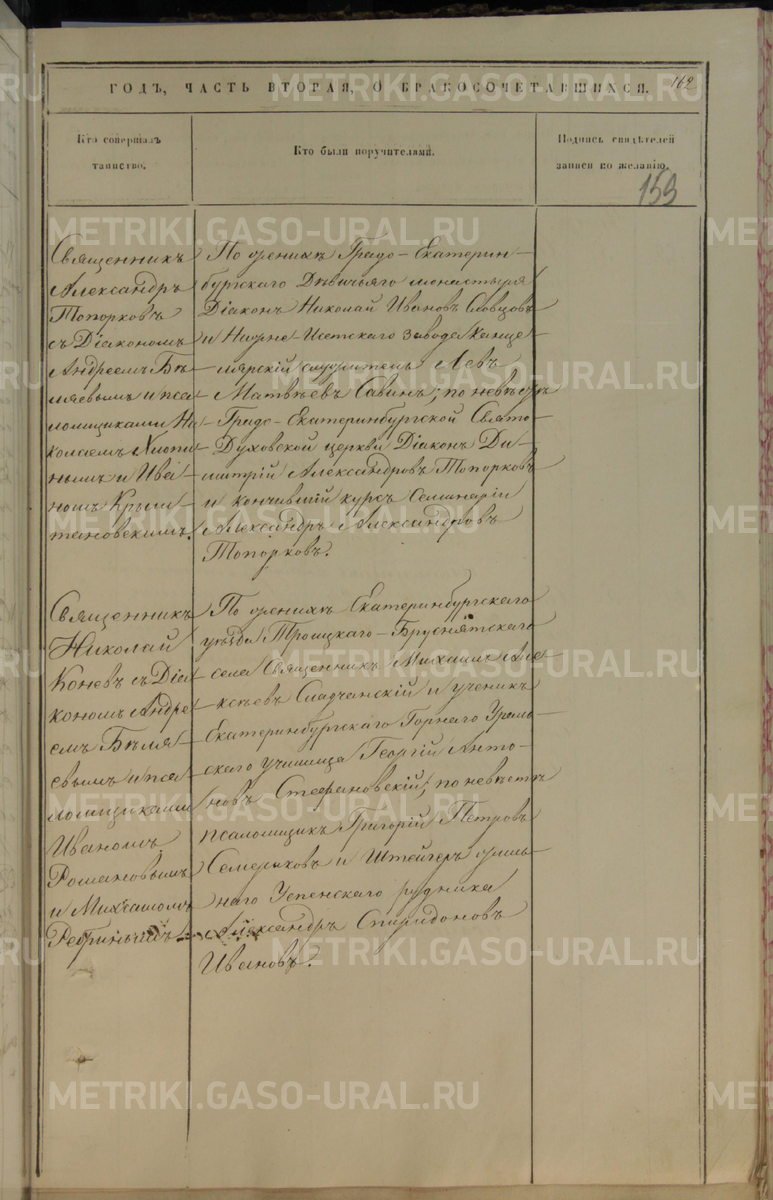 162
ГОДЪ, ЧАСТЬ ВТОРАЯ, О БРАКОСОЧЕТАВШИХСЯ.
Кто совершалъ
таинство.
Кто были поручителями.
Подпись свидѣтелей
записи по желанію.
159
Священникъ
Александръ
Топорковъ
съ Діакономъ
Андреемъ Бѣ-
ляевымъ и пса-
ломщиками Ни-
колаемъ
нымъ и Ива-
номъ
тановскимъ.
По женихѣ Градо-Екатерин-
бургскаго Дѣвичьяго монастыря
Діаконъ Николай Ивановъ Словцовъ
и Нижне-Исетскаго завода Канце-
лярскій служитель Левъ
Матвѣевъ Савинъ; по невѣстѣ
Градо-Екатеринбургской Свято-
Духовской церкви Діаконъ Ди-
митрій Александровъ Топорковъ
и кончившій курсъ Семинаріи
Александръ Александровъ
Топорковъ.
Священникъ
Николай
Коневъ съ Діа-
кономъ Андре-
емъ Бѣля-
евымъ и пса-
ломщиками
Иваномъ
Романовымъ
и Михаиломъ
По женихѣ Екатеринбургскаго
уѣзда Троицкаго-Бруснятскаго
села Священникъ Михаилъ Але-
ксѣевъ Сладчанскій и ученикъ
Екатеринбургскаго Горнаго Ураль-
скаго училища Георгій Анто-
новъ Стефановскій; по невѣстѣ
псаломщикъ Григорій Петровъ
и Штейгеръ
наго Успенскаго рудника
Александръ Спиридоновъ
Ивановъ.
METRIKI.GASO-URAL.RU